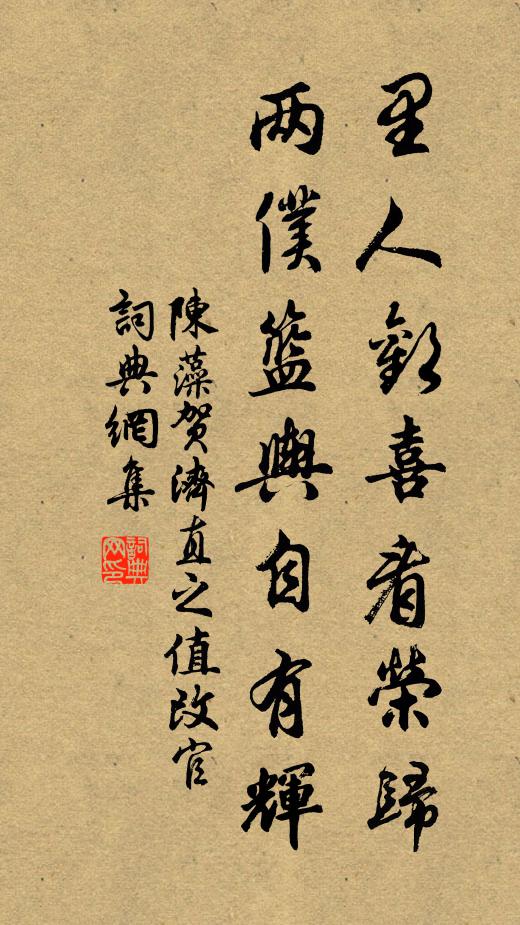 里人歡喜看榮歸
两僕籃輿自有輝
陳藻賀濟直之值改官
詞典網集
詞典網印